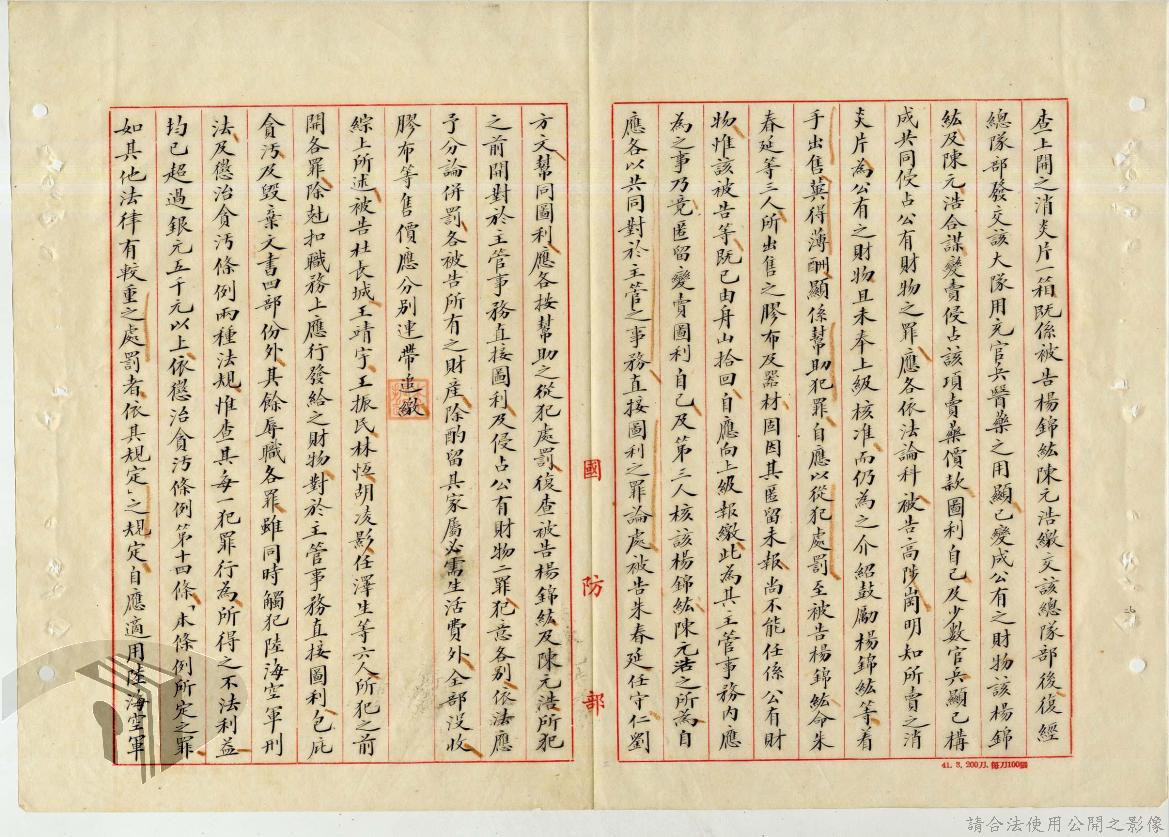 查上開之消炎片一箱既係被告楊錦紘陳元浩繳交該總隊部後復經
總隊部發交該大隊用充官兵醫藥之用顯已變成公有之財物該楊錦
紘及陳元浩合謀變賣侵占該項賣藥價款圖利自己及少數官兵顯已構
成共同侵占公有財物之罪應各依法論科被告高陟崗明知所賣之消
炎片為公有之財物且未奉上級核准而仍為之介紹鼓勵楊錦紘等着
手出售冀得薄酬顯係幫助犯罪自應以從犯處罰至被告楊錦紘命朱
春延等三人所出售之膠布及器材固因其匿留未報尚不能任係公有財
物惟該被告等既已由舟山拾回自應向上級報繳此為其主管事務內應
為之事乃竟匿留變賣圖利自己及第三人核該楊錦紘陳元浩之所為自
應各以共同對於主管之事務直接圖利之罪論處被告朱春延任守仁劉
國防部
方文幫同圖利應各按幫助之從犯處罰復查被告楊錦紘及陳元浩所犯
之前開對於主管事務直接圖利及侵占公有財物二罪犯意各別依法應
予分論併罰各被告所有之財產除酌留其家屬必需生活費外全部沒收
膠布等售價應分別連帶追繳
綜上所述被告杜長城王靖宇王振民林恆胡凌影任澤生等六人所犯之前
開各罪除尅扣職務上應行發給之財物對於主管事務直接圖利包庇
貪污及毀棄文書四部份外其餘辱職各罪雖同時觸犯陸海空軍刑
法及懲治貪污條例兩種法規惟查其每一犯罪行為所得之不法利益
均已超過銀元五千元以上依懲治貪污條例第十四條「本條例所定之罪
如其他法律有較重之處罰者依其規定」之規定自應適用陸海空軍
41. 3. 200刀. 每刀100張
請合法使用公開之影像